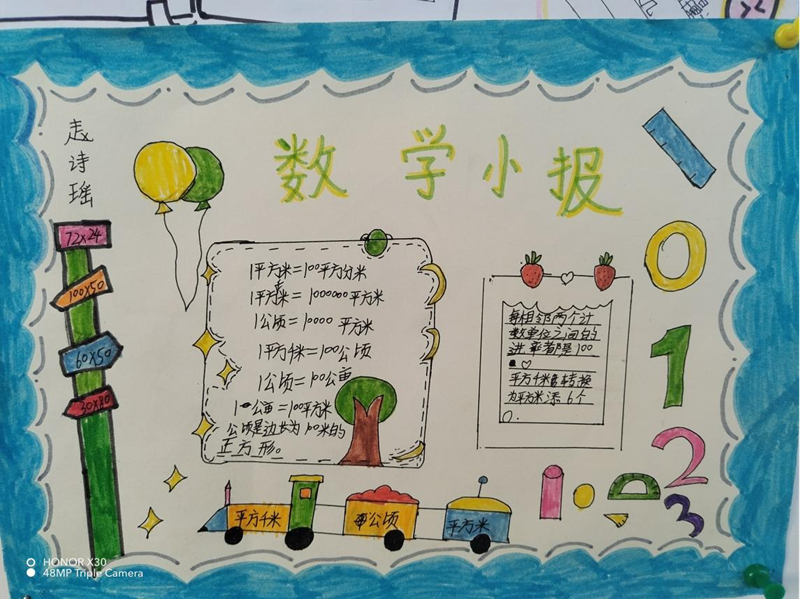 数学小报
袁诗瑶
72×24
100×50
60×50
30×80
1平方米=100平方分米
1平方千米=1000000平方米
1公顷=10000平方米
1平方千米=100公顷
1公顷=100公亩
1公亩=100平方米
公顷是边长为100米的
正方形。
每相邻两个计
数单位之间的
进率都是100
平方千米转换
为平方米添6个
0.
平方千米
公顷
平方米
0
1
2
3
HONOR X30
48MP Triple Camera